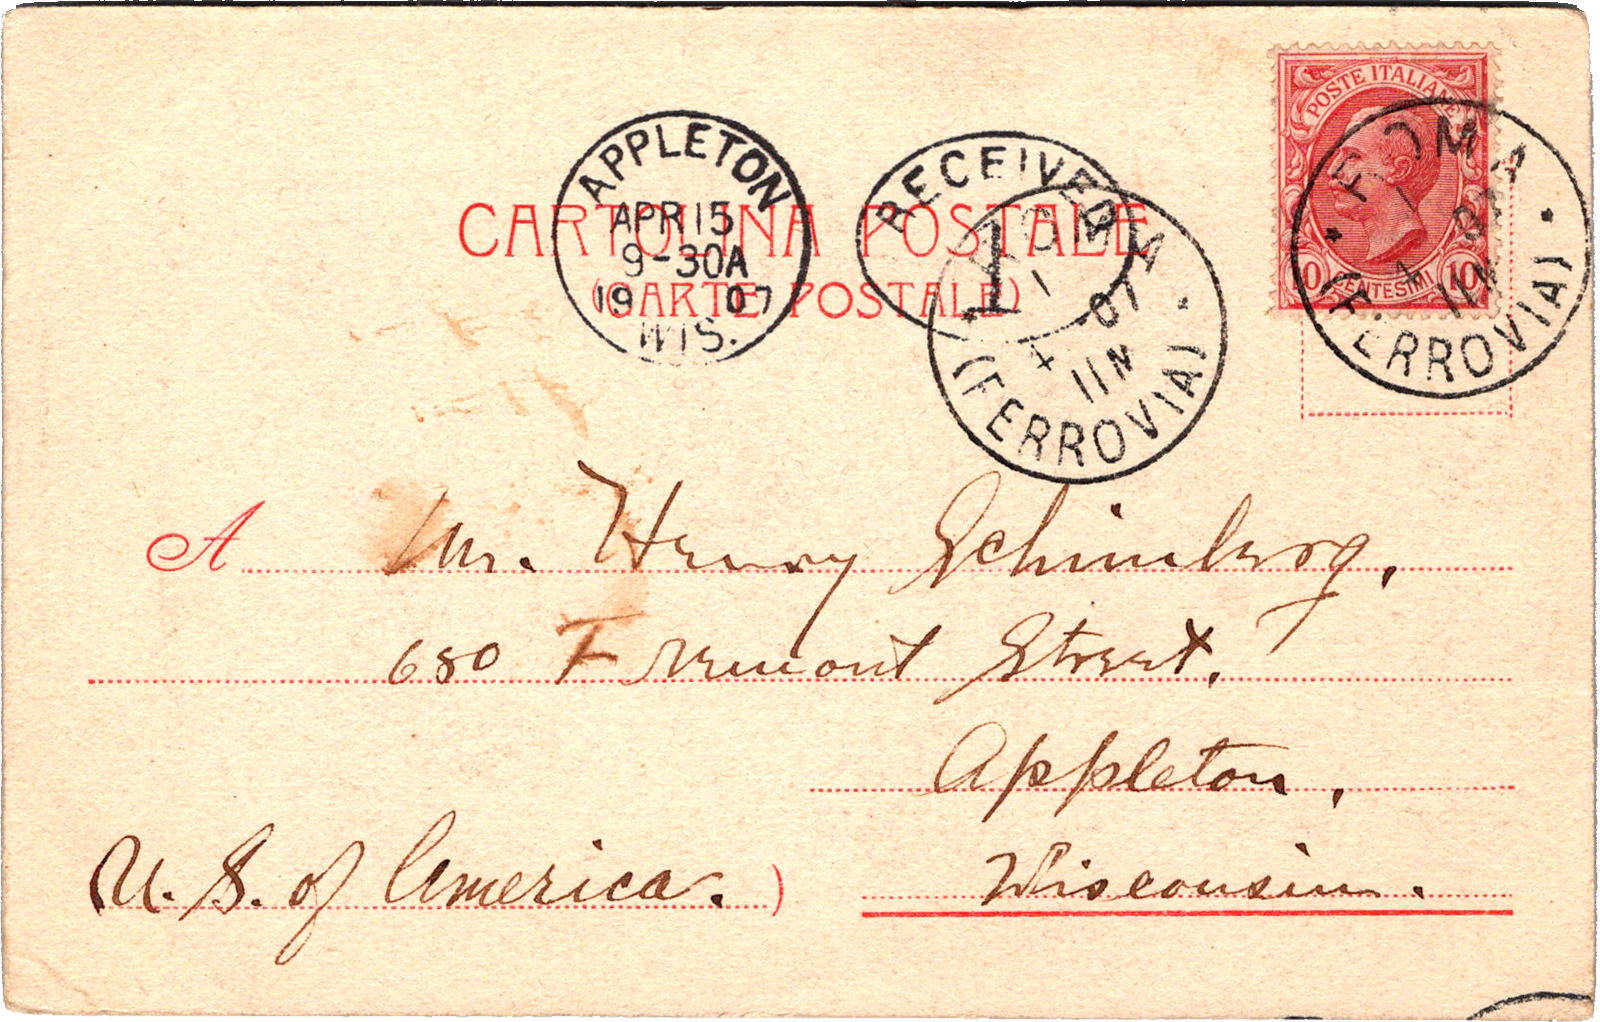 POSTE ITALIANE
10 CENTESIMI 10
ROMA
1 4 07
11M
(FERROVIA)
APPLETON
APR 15
9-30A
19 07
WIS.
RECEIVED
1
ROMA
1 4 07
11M
(FERROVIA)
CARTOLINA POSTALE
(CARTE POSTALE)
A Mr. Henry Schimberg,
680 Fremont Street,
Appleton,
U. S. of America.)
Wisconsin.